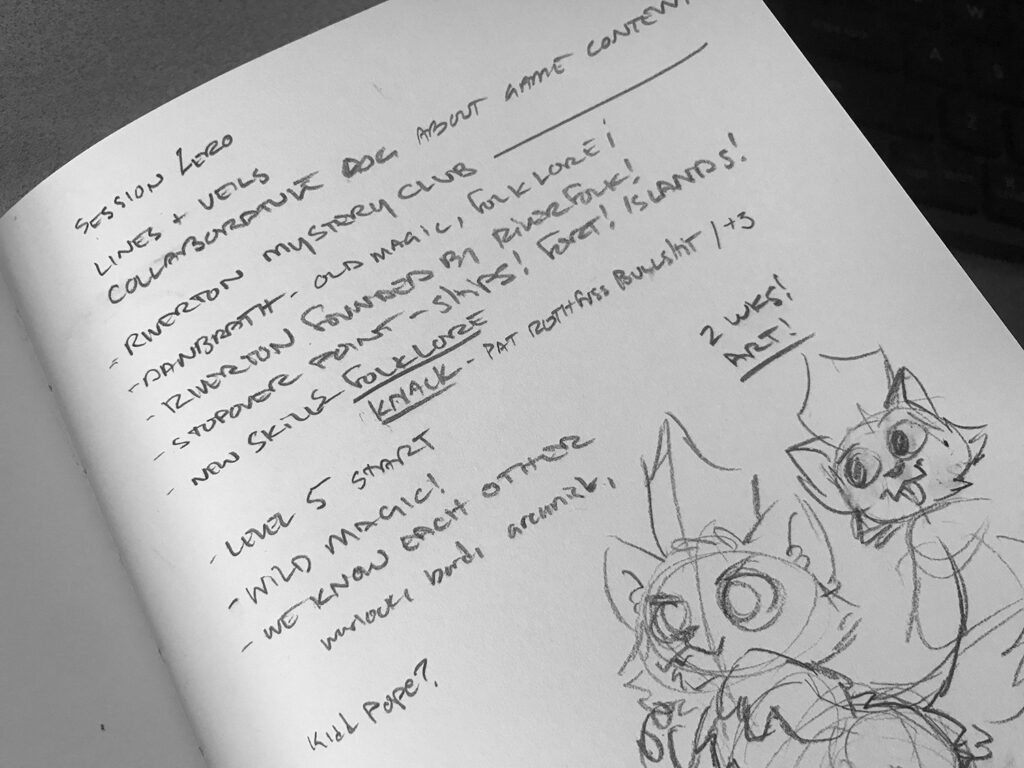 SESSION ZERO
LINES + VEILS
COLLABORATIVE DOC ABOUT GAME CONTENT
- RIVERTON MYSTERY CLUB
- DANBRATH - OLD MAGIC, FOLKLORE!
- RIVERTON FOUNDED BY RIVERFOLK!
- STOPOVER POINT - SHIPS! FORT! ISLANDS!
- NEW SKILLS FOLKLORE
KNACK - PAT ROTHFUSS BULLSHIT / +3
2 WKS!
ART!
- LEVEL 5 START
- WILD MAGIC!
- WE KNOW EACH OTHER
warlock, bard,
Kill Pope?,